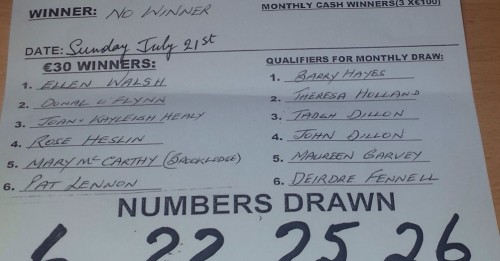 WINNER: NO WINNER
MONTHLY CASH WINNERS(3 X€100)
DATE: Sunday July 21st
€30 WINNERS:
1. ELLEN WALSH
2. DONAL O FLYNN
3. JOAN + KAYLEIGH HEALY
4. ROSE HESLIN
5. MARY MCCARTHY (BROOKLODGE)
6. PAT LENNON
QUALIFIERS FOR MONTHLY DRAW:
1. BARRY HAYES
2. THERESA HOLLAND
3. TADGH DILLON
4. JOHN DILLON
5. MAUREEN GARVEY
6. DEIRDRE FENNELL
NUMBERS DRAWN
22 25 26